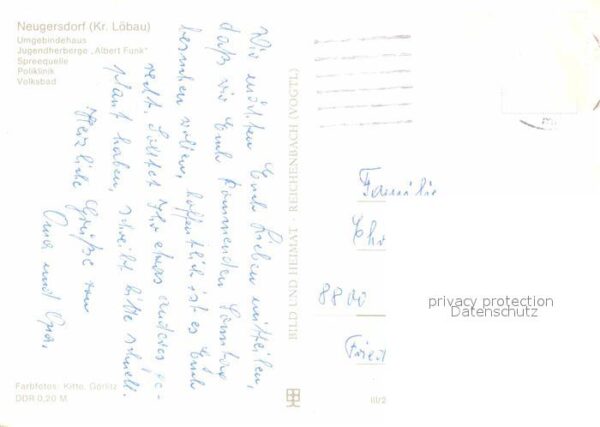 Neugersdorf (Kr. Löbau)
Umgebindehaus
Jugendherberge „Albert Funk"
Spreequelle
Poliklinik
Volksbad
Wir möchten Euch Lieben mitteilen,
daß wir Euch kommenden Samstag
besuchen wollen, hoffentlich ist es Euch
recht. Solltet Ihr etwas anderes ge-
plant haben, schreibt bitte schnell.
Herzliche Grüße von
Oma und Opa.
BILD UND HEIMAT REICHENBACH (VOGTL)
Familie
Ehr
8800
privacy protection
Datenschutz
Farbfotos: Kitte, Görlitz
DDR 0,20 M
III/2